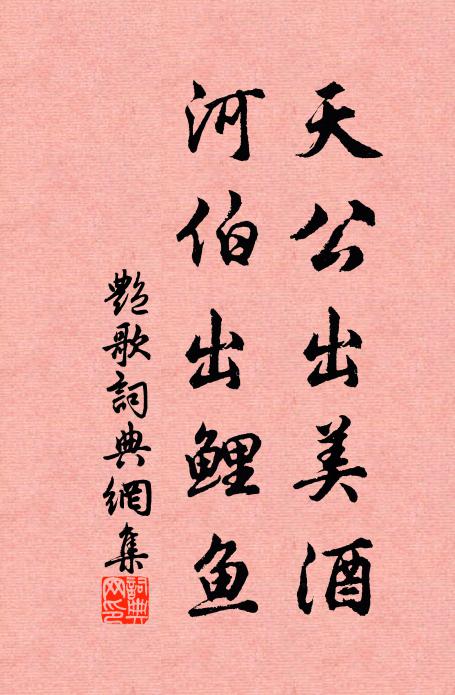 天公出美酒
河伯出鲤鱼
艷歌詞典網集
詞典网印